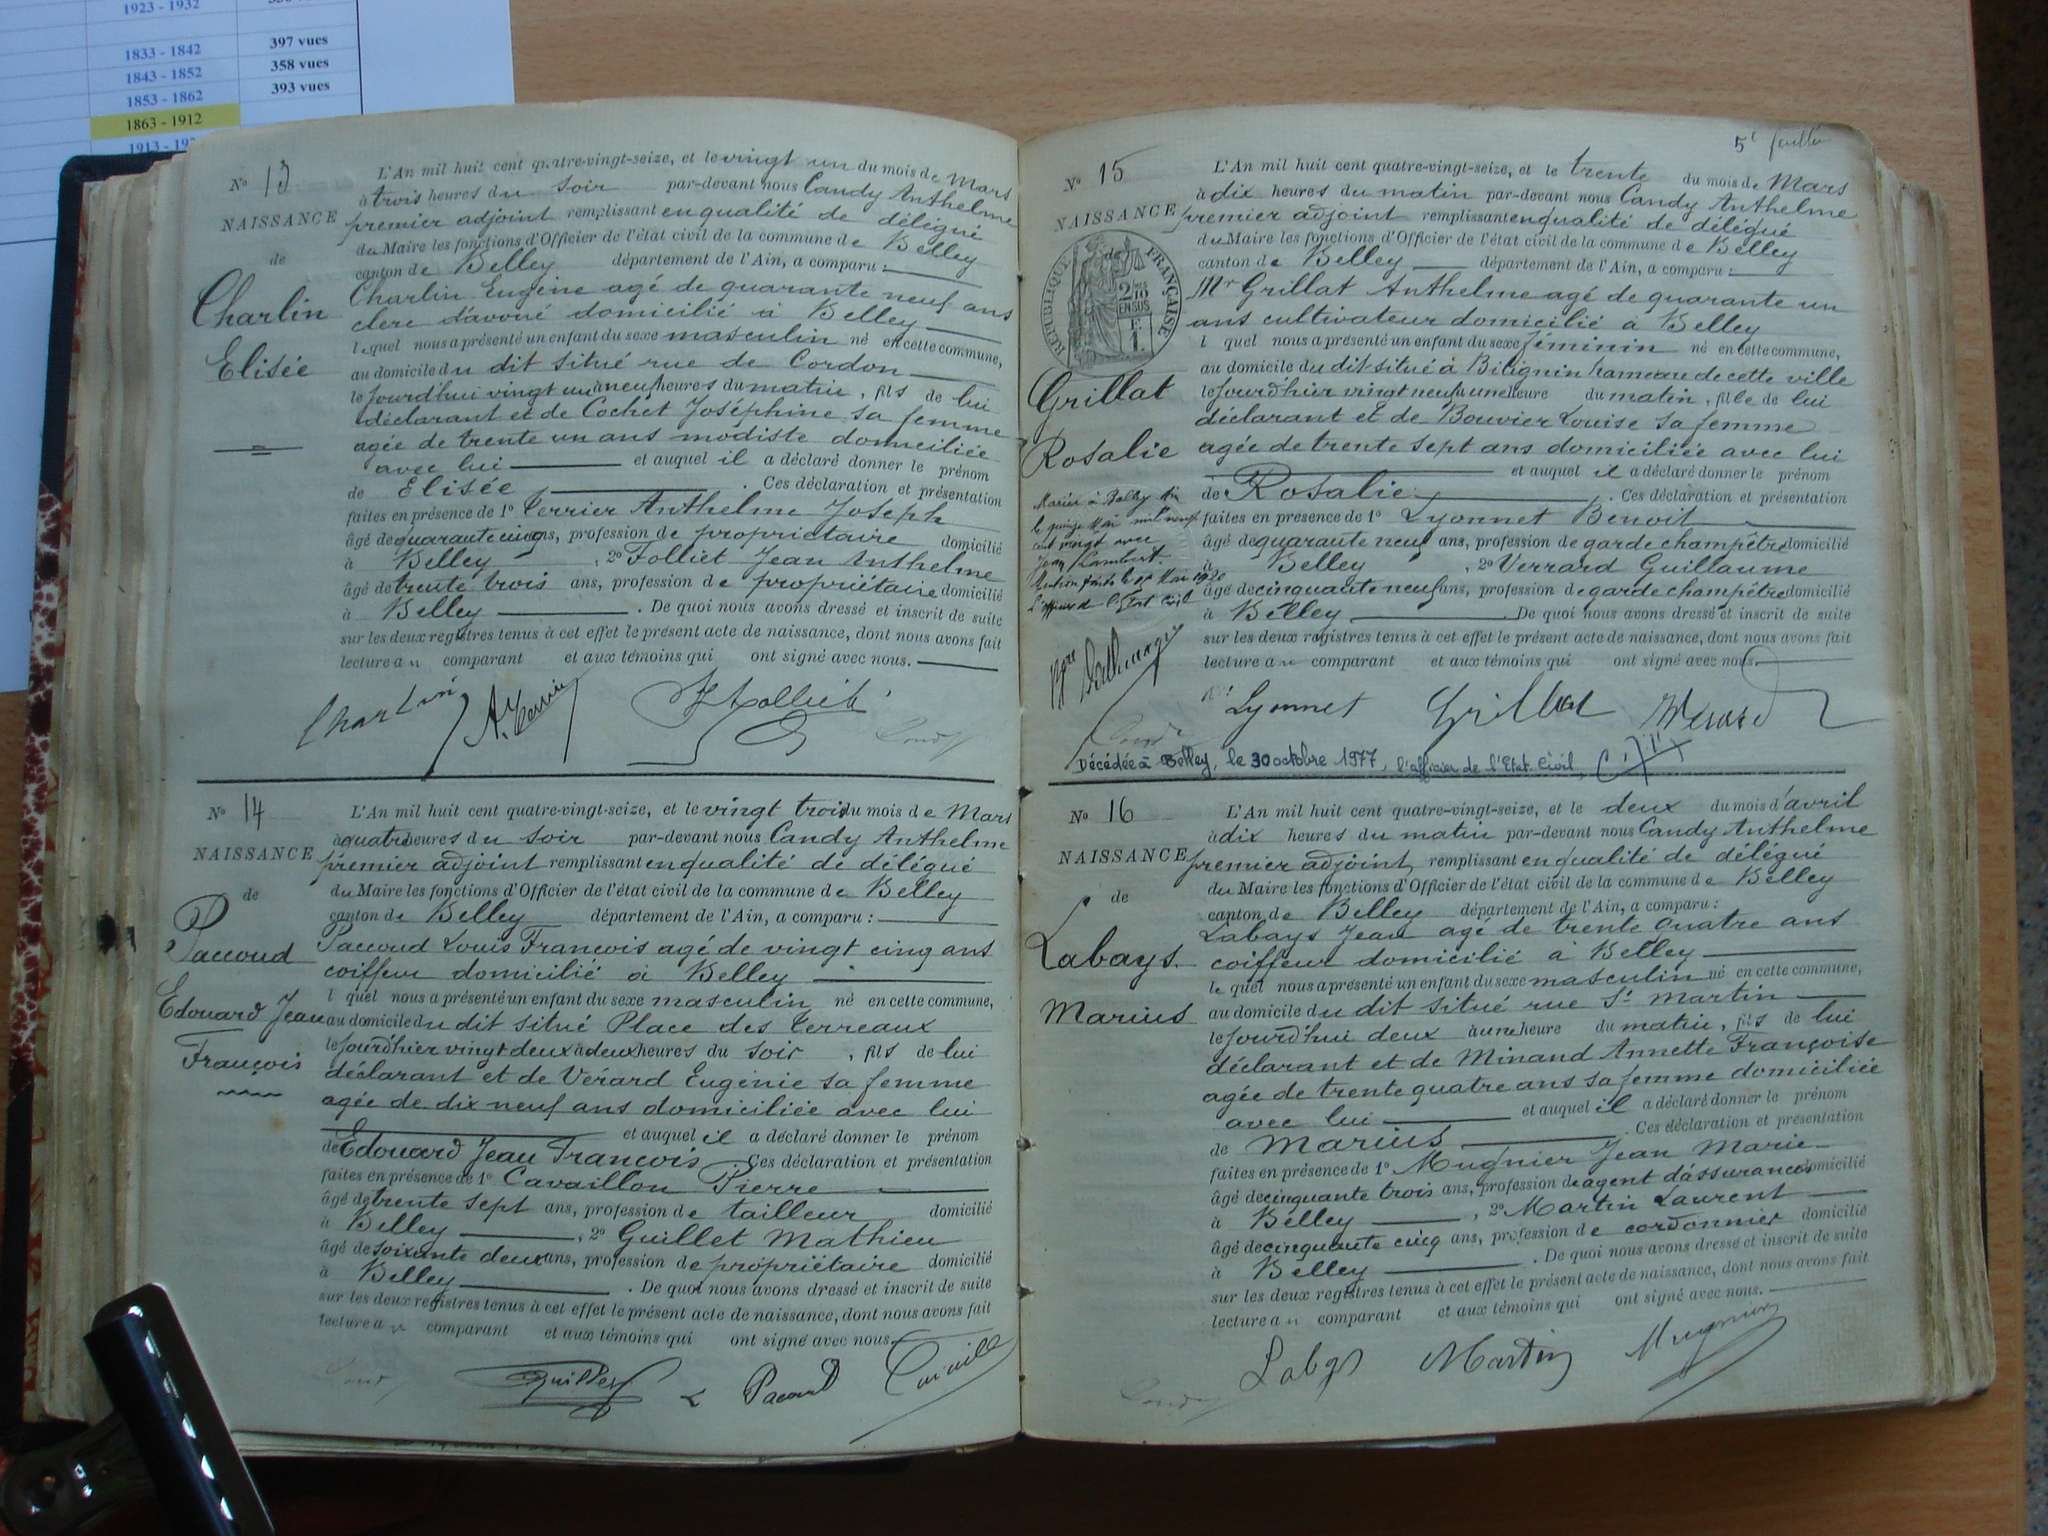 1923 - 1932
1833 - 1842 397 vues
1843 - 1852 358 vues
1853 - 1862 393 vues
1863 - 1912
N° 13
NAISSANCE
de
Charlin
Elisée
L'An mil huit cent quatre-vingt-seize, et le vingt un du mois de Mars
à trois heures du soir par-devant nous Candy Anthelme
premier adjoint remplissant en qualité de délégué
du Maire les fonctions d'Officier de l'état civil de la commune de Belley
canton de Belley département de l'Ain, a comparu :
Charlin Eugène agé de quarante neuf ans
clerc d'avoué domicilié à Belley
lequel nous a présenté un enfant du sexe masculin né en cette commune,
au domicile du dit situé rue de Cordon
le jourd'hui vingt un à neuf heures du matin, fils de lui
déclarant et de Cochet Joséphine sa femme
agée de trente un ans modiste domiciliée
avec lui et auquel il a déclaré donner le prénom
de Elisée . Ces déclaration et présentation
faites en présence de 1° Terrier Anthelme Joseph
âgé de quarante cinq ans, profession de propriétaire domicilié
à Belley , 2° Folliet Jean Anthelme
âgé de trente trois ans, profession de propriétaire domicilié
à Belley . De quoi nous avons dressé et inscrit de suite
sur les deux registres tenus à cet effet le présent acte de naissance, dont nous avons fait
lecture au comparant et aux témoins qui ont signé avec nous.
Charlin
N° 14
NAISSANCE
de
Paccoud
Edouard Jean
François
L'An mil huit cent quatre-vingt-seize, et le vingt trois du mois de Mars
à quatre heures du soir par-devant nous Candy Anthelme
premier adjoint remplissant en qualité de délégué
du Maire les fonctions d'Officier de l'état civil de la commune de Belley
canton de Belley département de l'Ain, a comparu :
Paccoud Louis François agé de vingt cinq ans
coiffeur domicilié à Belley
l quel nous a présenté un enfant du sexe masculin né en cette commune,
au domicile du dit situé Place des Terreaux
le jourd'hier vingt deux à deux heures du soir, fils de lui
déclarant et de Vérard Eugénie sa femme
agée de dix neuf ans domiciliée avec lui
et auquel il a déclaré donner le prénom
de Edouard Jean François . Ces déclaration et présentation
faites en présence de 1° Cavaillon Pierre
âgé de trente sept ans, profession de tailleur domicilié
à Belley , 2° Guillet Mathieu
âgé de soixante deux ans, profession de propriétaire domicilié
à Belley . De quoi nous avons dressé et inscrit de suite
sur les deux registres tenus à cet effet le présent acte de naissance, dont nous avons fait
lecture au comparant et aux témoins qui ont signé avec nous.
5e feuillet
N° 15
NAISSANCE
RÉPUBLIQUE FRANÇAISE
Grillat
Rosalie
L'An mil huit cent quatre-vingt-seize, et le trente du mois de Mars
à dix heures du matin par-devant nous Candy Anthelme
premier adjoint remplissant en qualité de délégué
du Maire les fonctions d'Officier de l'état civil de la commune de Belley
canton de Belley département de l'Ain, a comparu :
Mr Grillat Anthelme agé de quarante un
ans cultivateur domicilié à Belley
l quel nous a présenté un enfant du sexe féminin né en cette commune,
au domicile du dit situé à Bilignin hameau de cette ville
le jourd'hier vingt neuf à une heure du matin, fille de lui
déclarant et de Bouvier Louise sa femme
agée de trente sept ans domiciliée avec lui
et auquel il a déclaré donner le prénom
de Rosalie . Ces déclaration et présentation
faites en présence de 1° Lyonnet Benoit
âgé de quarante neuf ans, profession de garde champêtre domicilié
à Belley , 2° Verrard Guillaume
âgé de cinquante neuf ans, profession de garde champêtre domicilié
à Belley . De quoi nous avons dressé et inscrit de suite
sur les deux registres tenus à cet effet le présent acte de naissance, dont nous avons fait
lecture au comparant et aux témoins qui ont signé avec nous.
Mariée à Belley
le quinze Mai mil neuf
cent vingt avec
Jean Lambert.
Mai 1920
L'officier de l'Etat Civil
Lyonnet Grillat
Décédée à Belley, le 30 octobre 1977, l'officier de l'Etat Civil,
N° 16
NAISSANCE
de
Labays
Marius
L'An mil huit cent quatre-vingt-seize, et le deux du mois d'avril
à dix heures du matin par-devant nous Candy Anthelme
premier adjoint remplissant en qualité de délégué
du Maire les fonctions d'Officier de l'état civil de la commune de Belley
canton de Belley département de l'Ain, a comparu :
Labays Jean agé de trente quatre ans
coiffeur domicilié à Belley
le quel nous a présenté un enfant du sexe masculin né en cette commune,
au domicile du dit situé rue St Martin
le jourd'hui deux à une heure du matin, fils de lui
déclarant et de Minand Annette Françoise
agée de trente quatre ans sa femme domiciliée
avec lui et auquel il a déclaré donner le prénom
de Marius . Ces déclaration et présentation
faites en présence de 1° Mugnier Jean Marie
âgé de cinquante trois ans, profession de agent d'assurances domicilié
à Belley , 2° Martin Laurent
âgé de cinquante cinq ans, profession de cordonnier domicilié
à Belley . De quoi nous avons dressé et inscrit de suite
sur les deux registres tenus à cet effet le présent acte de naissance, dont nous avons fait
lecture au comparant et aux témoins qui ont signé avec nous.
Martin Mugnier